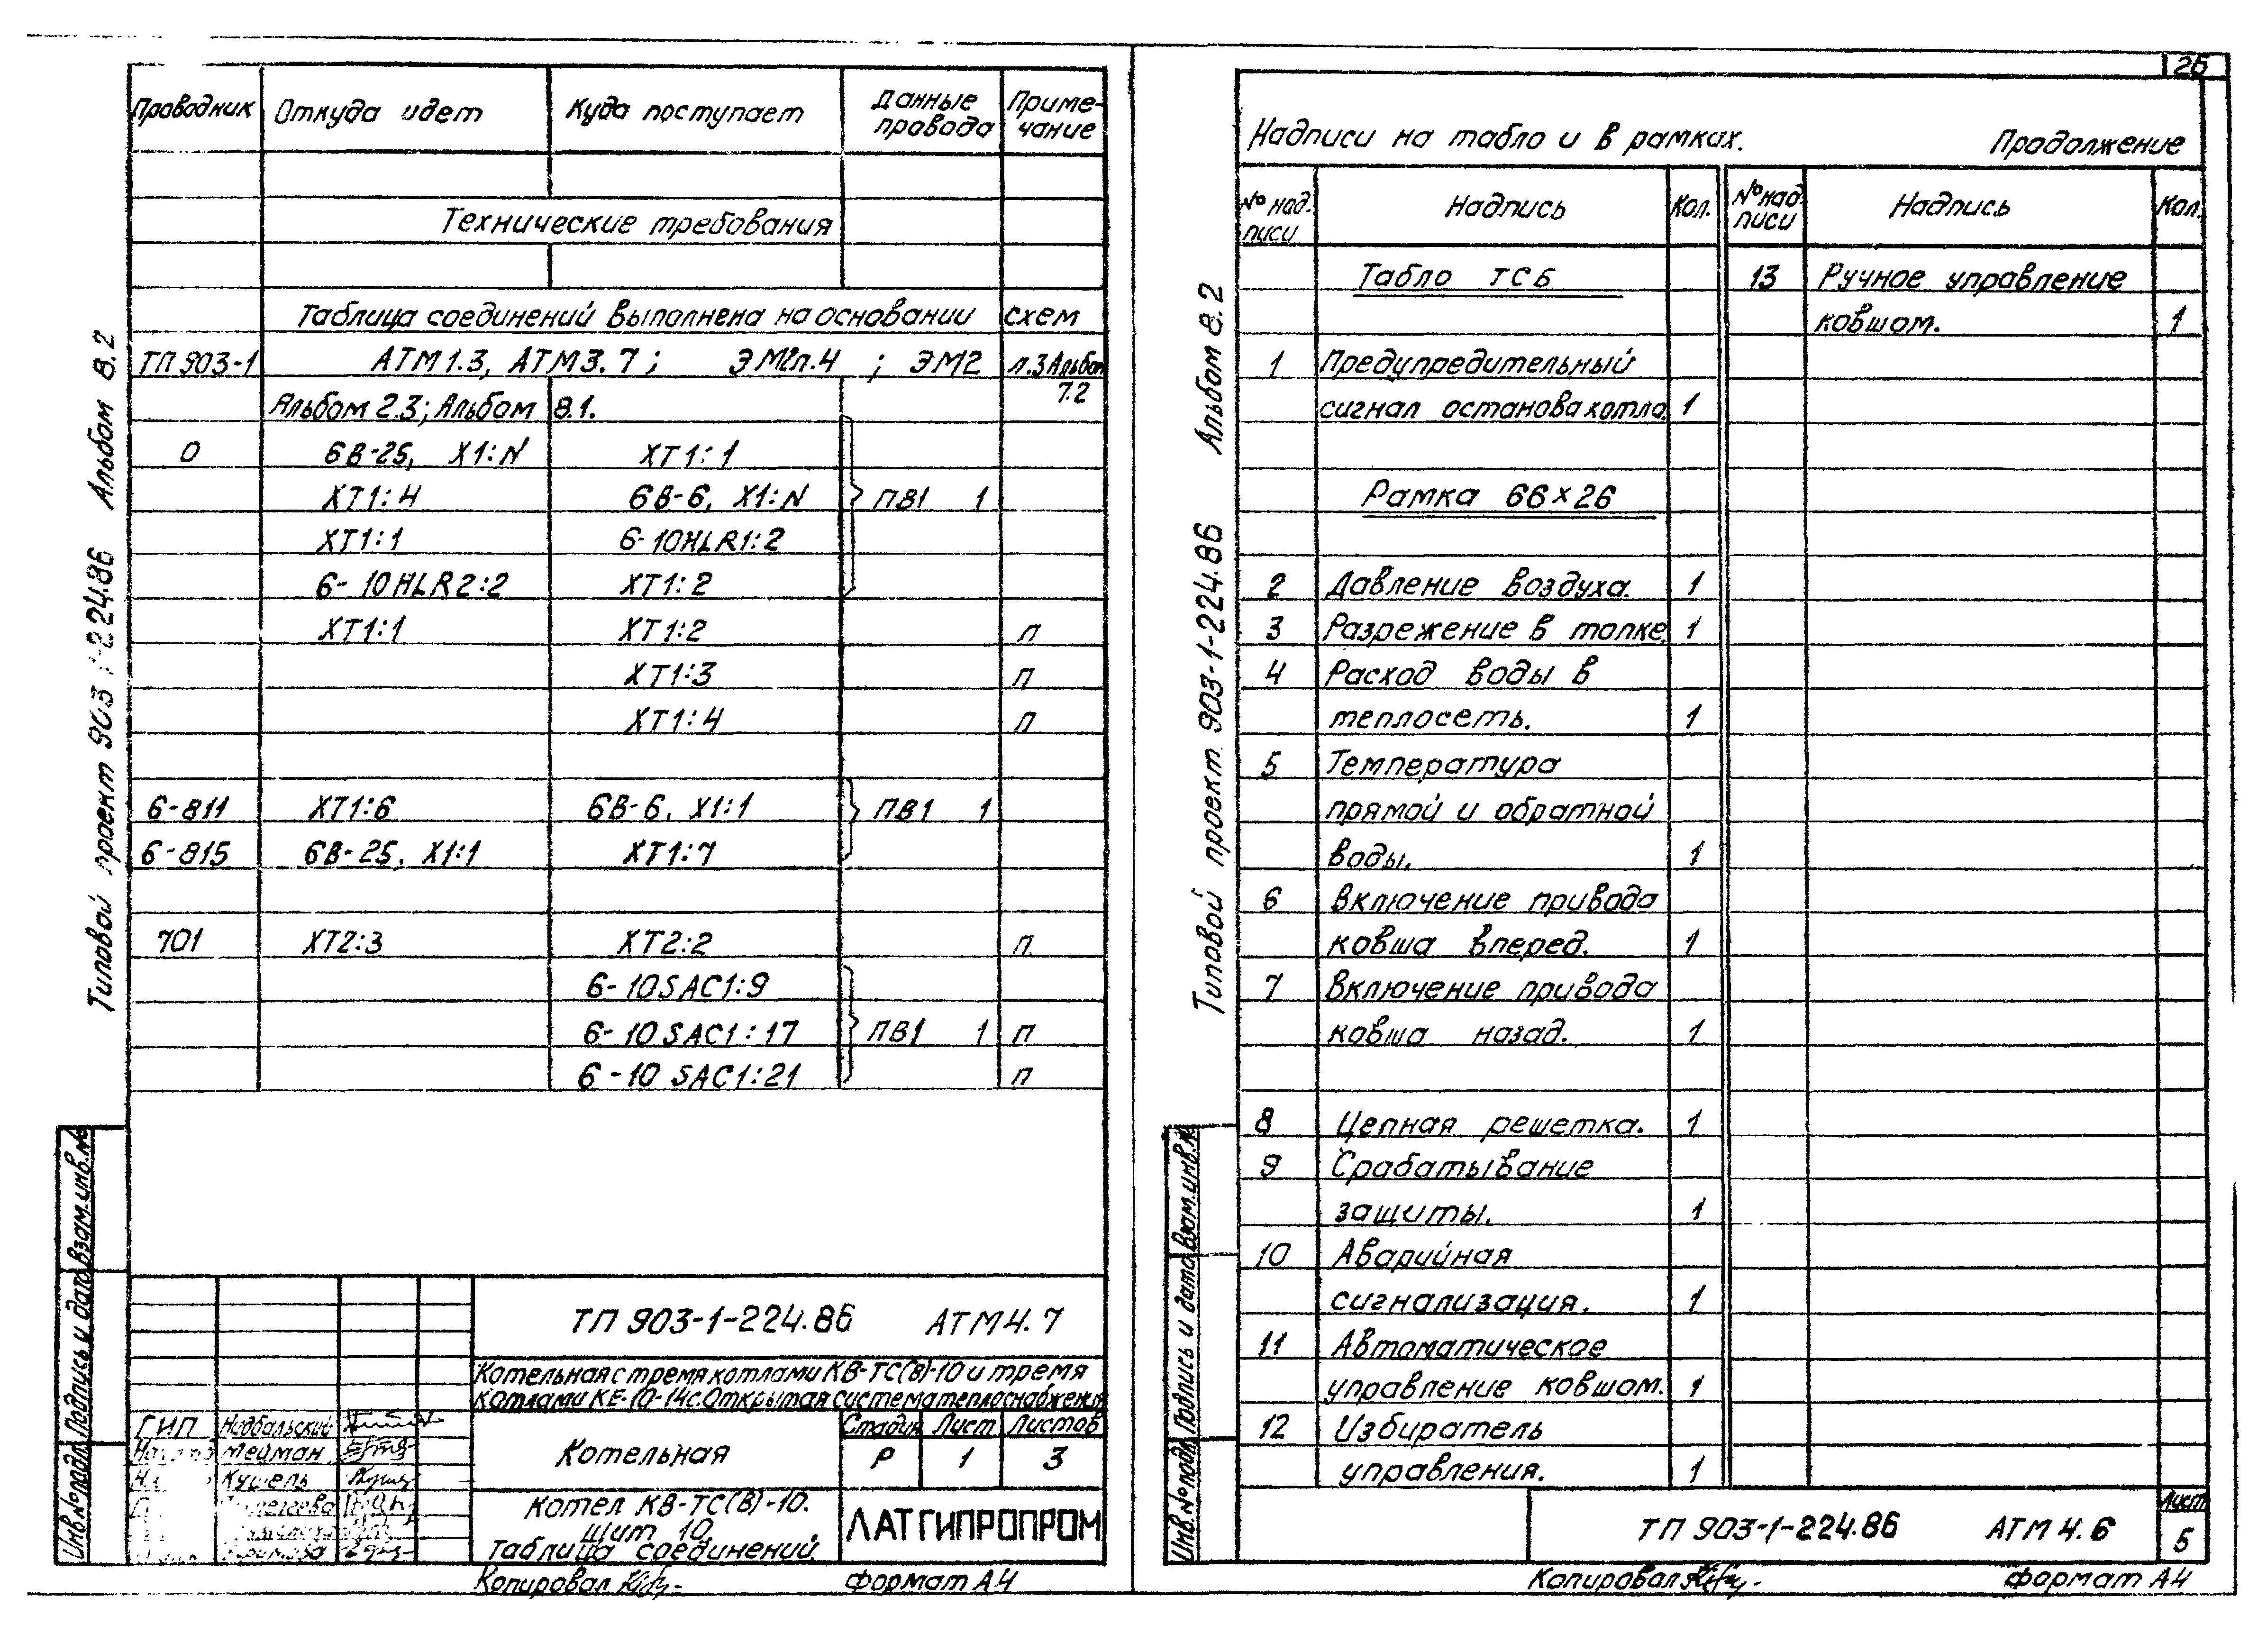 126
Типовой проект 903-1-224.86 Альбом 8.2
Проводник | Откуда идет | Куда поступает | Данные провода | Приме-чание
Технические требования
Таблица соединений выполнена на основании схем
ТП 903-1 АТМ1.3, АТМ3.7; ЭМ2л.4 ; ЭМ2 л.3 Альбом 7.2
Альбом 2.3; Альбом 8.1.
0 6В-25, Х1:N ХТ1:1
ХТ1:4 6В-6, Х1:N ПВ1 1
ХТ1:1 6-10HLR1:2
6-10HLR2:2 ХТ1:2
ХТ1:1 ХТ1:2 п
ХТ1:3 п
ХТ1:4 п
6-811 ХТ1:6 6В-6, Х1:1 ПВ1 1
6-815 6В-25, Х1:1 ХТ1:7
701 ХТ2:3 ХТ2:2 п
6-10SAC1:9
6-10SAC1:17 ПВ1 1 п
6-10SAC1:21 п
Взам.инв.№
Подпись и дата
Инв.№подл.
ТП 903-1-224.86 АТМ4.7
Котельная с тремя котлами КВ-ТС(В)-10 и тремя
котлами КЕ-10-14с. Открытая система теплоснабжения
ГИП Надбальский
Мейман
Кушель
Котельная
Стадия Лист Листов
Р 1 3
Котел КВ-ТС(В)-10.
щит 10.
Таблица соединений.
ЛАТГИПРОПРОМ
Копировал
Формат А4
Типовой проект 903-1-224.86 Альбом 8.2
Надписи на табло и в рамках. Продолжение
№ над. писи | Надпись | Кол. | № над. писи | Надпись | Кол.
Табло ТСБ
1 Предупредительный
сигнал останова котла. 1
Рамка 66×26
2 Давление воздуха. 1
3 Разрежение в топке. 1
4 Расход воды в
теплосеть. 1
5 Температура
прямой и обратной
воды. 1
6 Включение привода
ковша вперед. 1
7 Включение привода
ковша назад. 1
8 Цепная решетка. 1
9 Срабатывание
защиты. 1
10 Аварийная
сигнализация. 1
11 Автоматическое
управление ковшом. 1
12 Избиратель
управления. 1
13 Ручное управление
ковшом. 1
Взам.инв.№
Подпись и дата
Инв.№подл.
ТП 903-1-224.86 АТМ4.6
Лист
5
Копировал
Формат А4